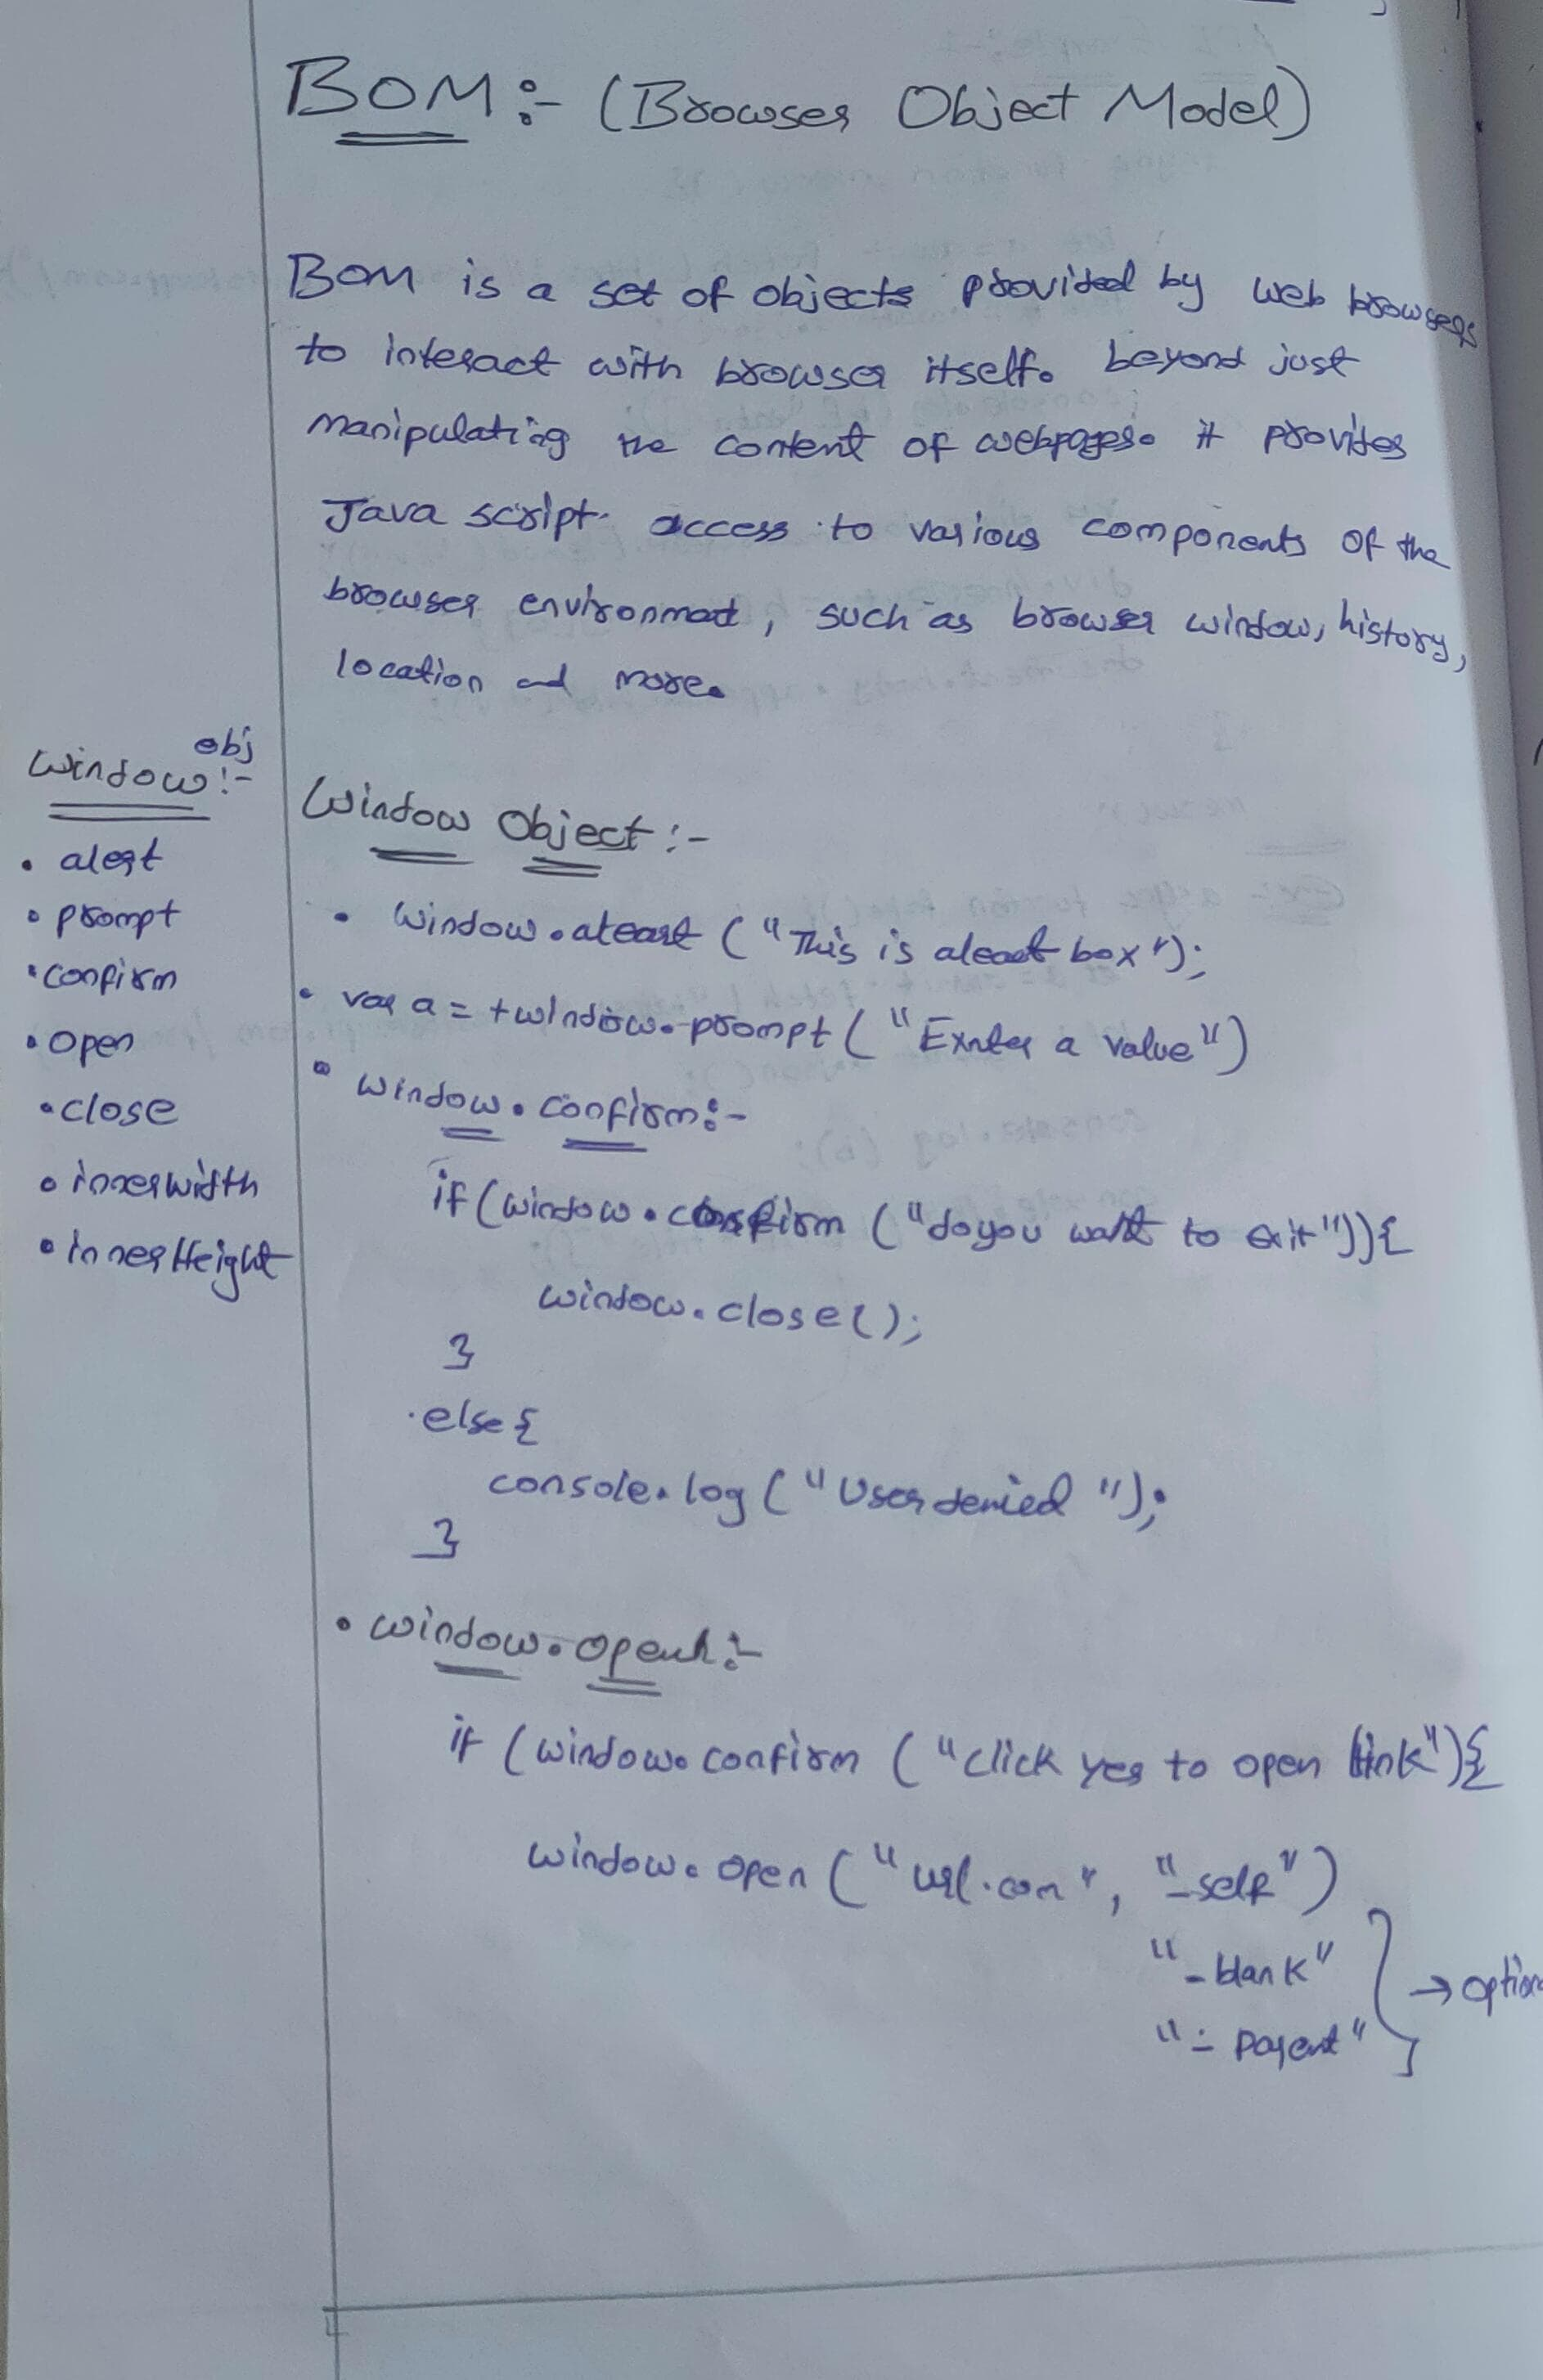 BOM :- (Browser Object Model)
BOM is a set of objects provided by web browsers
to interact with browser itself. beyond just
manipulating the content of webpages. it provides
Java script access to various components of the
browser environmat, such as browser window, history,
location and more.
Window obj :-
• alert
• prompt
• confirm
• open
• close
• innerwidth
• innerHeight
Window Object :-
• Window.aleart ("This is aleart box");
• var a = +window.prompt ("Exnter a value")
• window.confirm :-
if (window.confirm ("do you want to exit")){
window.close();
}
else {
console.log ("User denied");
}
• window.open :-
if (window.confirm ("click yes to open link"){
window.open ("url.com", "_self")
"_blank"
"_parent"
→ option